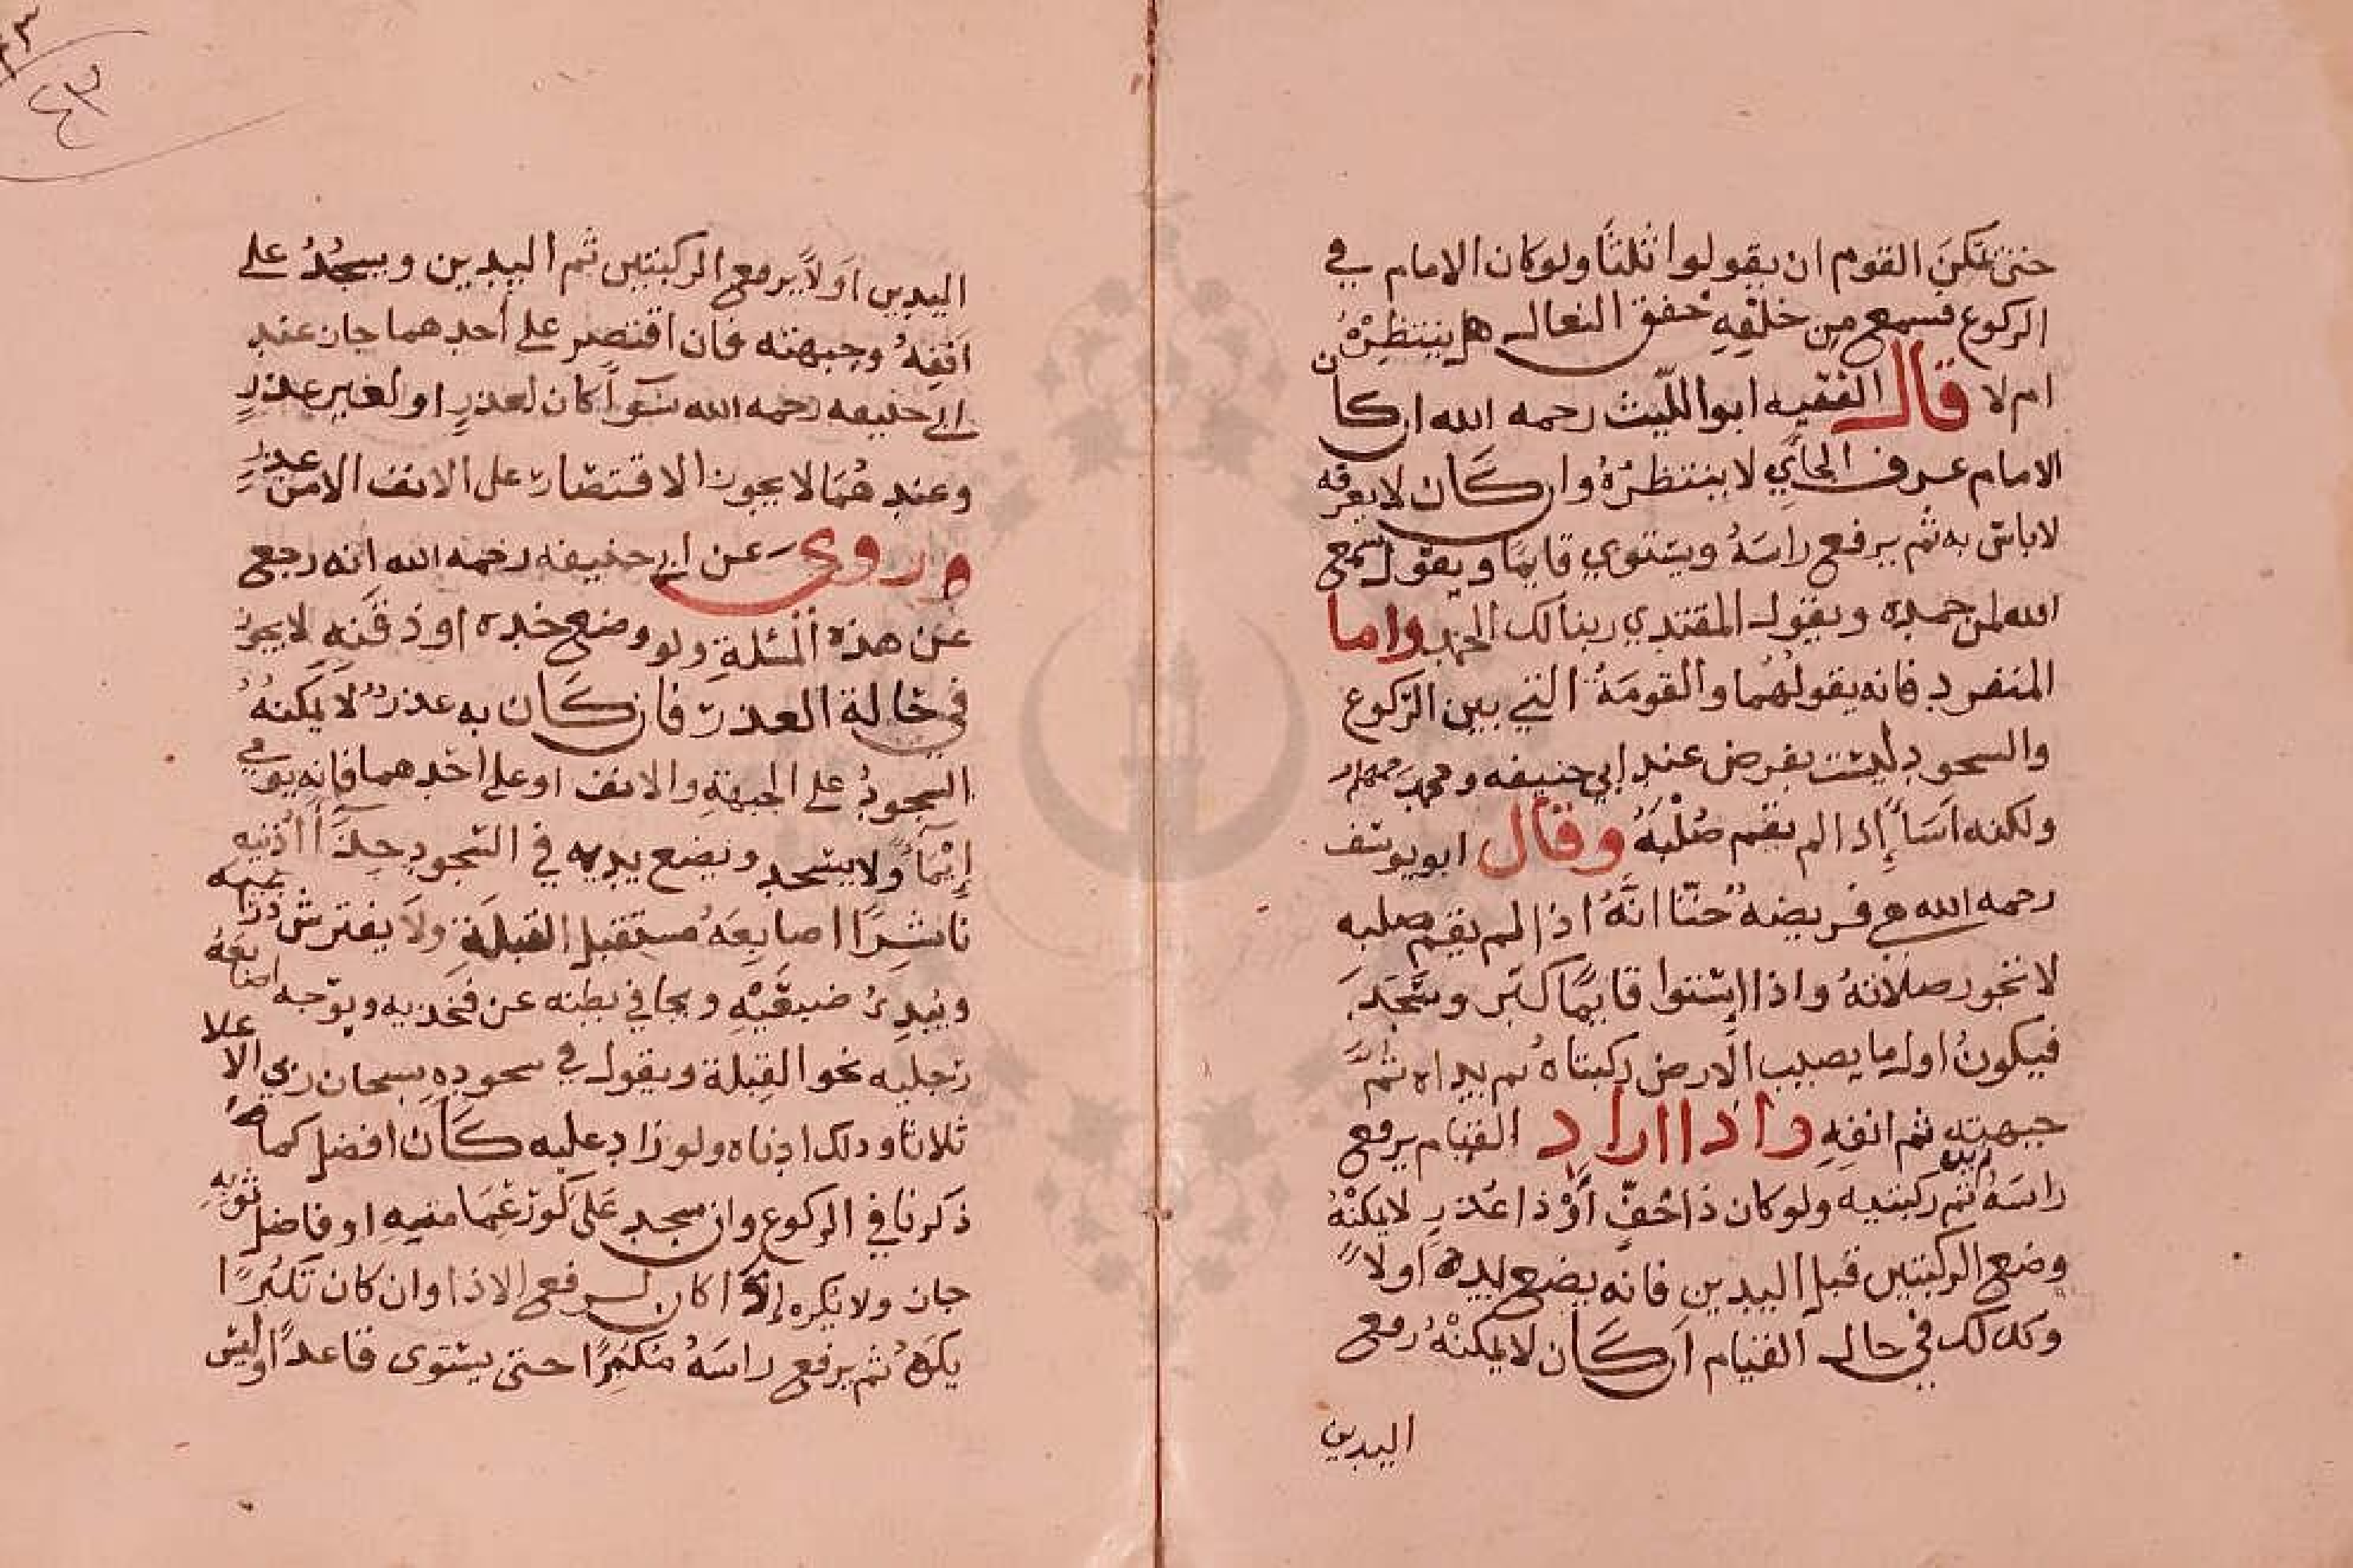 حتى تمكن القوم ان يقولوا ثلثا ولو كان الامام في
الركوع فسمع من خلفه خفق النعال هل ينتظره
ام لا قال الفقيه ابوا الليث رحمه الله ان كان
الامام عرف الجاي لا ينتظره وان كان لا يعرفه
لا باس به ثم يرفع راسه ويستوي قايما ويقول سمع
الله لمن حمده ويقول المقتدي ربنا لك الحمد واما
المنفرد فانه يقولهما والقومة التي بين الركوع
والسجود ليست بفرض عند ابي حنيفه ومحمد
ولكنه اسا إذا لم يقم صلبه وقال ابو يوسف
رحمه الله هي فريضه حتا انه اذا لم يقم صلبه
لا تجوز صلاته واذا استوا قايما كبر وسجد
فيكون اول ما يصيب الارض ركبتاه ثم يداه ثم
جبهته ثم انفه واذا اراد القيام يرفع
راسه ثم يديه ثم ركبتيه ولو كان ذا خف أو ذا عذر لا يمكنه
وضع الركبتين قبل اليدين فانه يضع يديه اولا
وكذلك في حال القيام ان كان لا يمكنه رفع
اليدين
اليدين اولا يرفع الركبتين ثم اليدين ويسجد على
انفه وجبهته فان اقتصر على أحدهما جاز عند
ابي حنيفه رحمه الله سوآ كان لعذر او لغير عذر
وعندهما لا يجوز الاقتصار على الانف الا من عذر
وروى عن ابي حنيفه رحمه الله انه رجع
عن هذه المسئلة ولو وضع خده او ذقنه لا يجوز
في حالة العذر فان كان به عذر لا يمكنه
السجود على الجبهة والانف او على احدهما فانه يومي
إيمآ ولا يسجد ويضع يديه في السجود حذآأ أذنيه
ناشرا اصابعه مستقبل القبلة ولا يفترش ذراعيه
ويبدي ضبعيه ويجافي بطنه عن فخذيه ويوجه اصابعه
رجليه نحو القبلة ويقول في سجوده سبحان ربي الاعلا
ثلاثا وذلك ادناه ولو زاد عليه كان افضل كما
ذكرنا في الركوع وان سجد على كور عمامته او فاضل ثوبه
جاز ولا يكره إذا كان لرفع الاذا وان كان تكبرا
يكره ثم يرفع راسه مكبرا حتى يستوى قاعدا وليس
٤٣